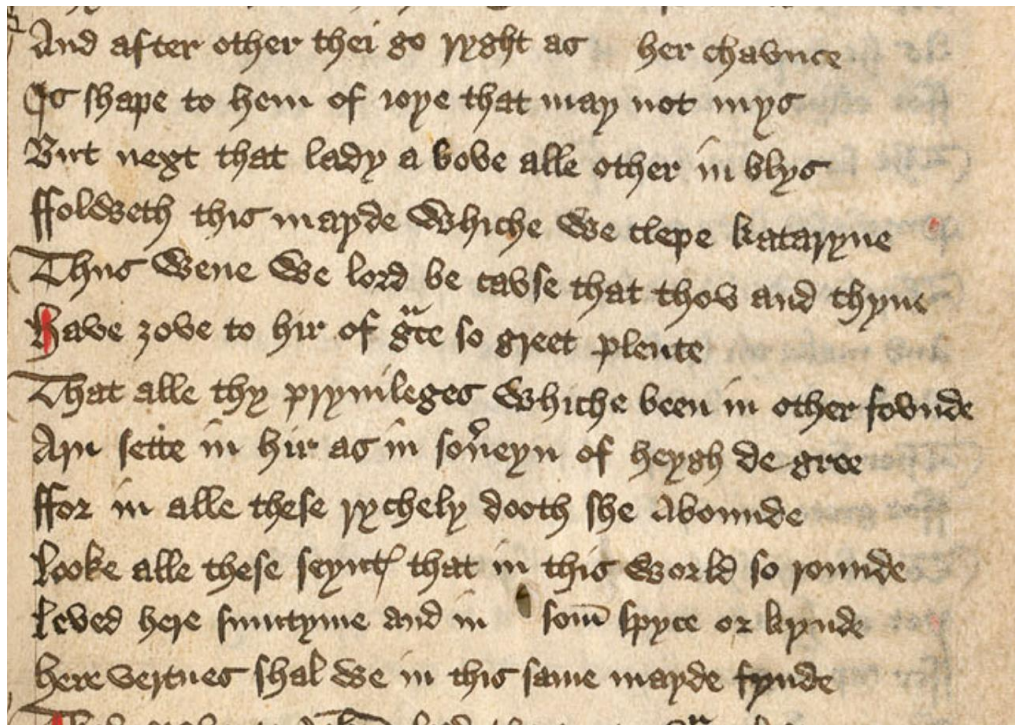 And after other thei go ryght as her chavnce
Is shape to hem of ioye that may not mys
But next that lady a bove alle other in blys
ffolweth this mayde whiche we clepe kataryne
Thus wene we lord be cavse that thov and thyne
Have zove to hir of gͣce so greet plente
That alle thy pryuileges whiche been in other fovnde
Arn sette in hir as in sou̾eyn of heygh de gree
ffor in alle these rychely dooth she abounde
Looke alle these seyntꝭ that in this world so rounde
Leved here sumtyme and in som̄ spyce or kynde
here vertues shal we in this same mayde fynde